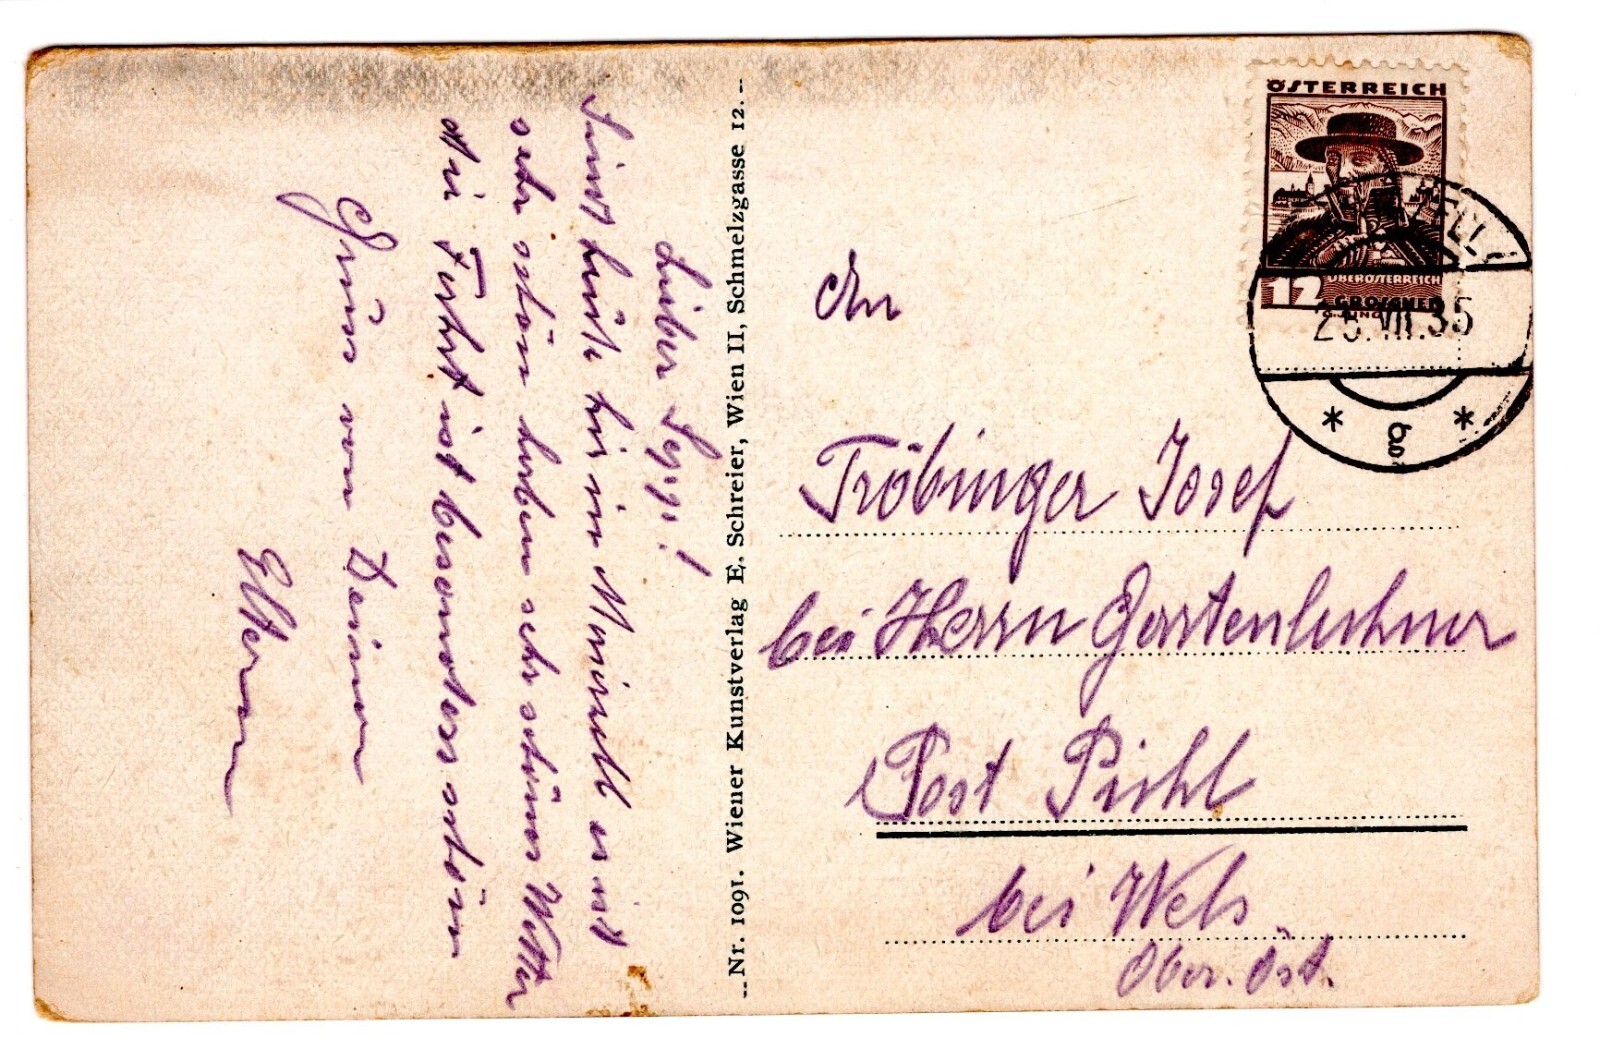 Lieber Seppi!
Sind heute hir in Mariazell es ist
sehr schön haben sehr schönes Wetter
die Fahrt ist besonders schön
Gruss von Deinen
Eltern
--Nr. 1091. Wiener Kunstverlag E. Schreier, Wien II, Schmelzgasse 12.--
ÖSTERREICH
OBERÖSTERREICH
12 GROSCHEN
ZELL
25.VII.35
* g *
An
Tröbinger Josef
bei Herrn Gerstenlehner
Post Pichl
bei Wels
Ober. Öst.